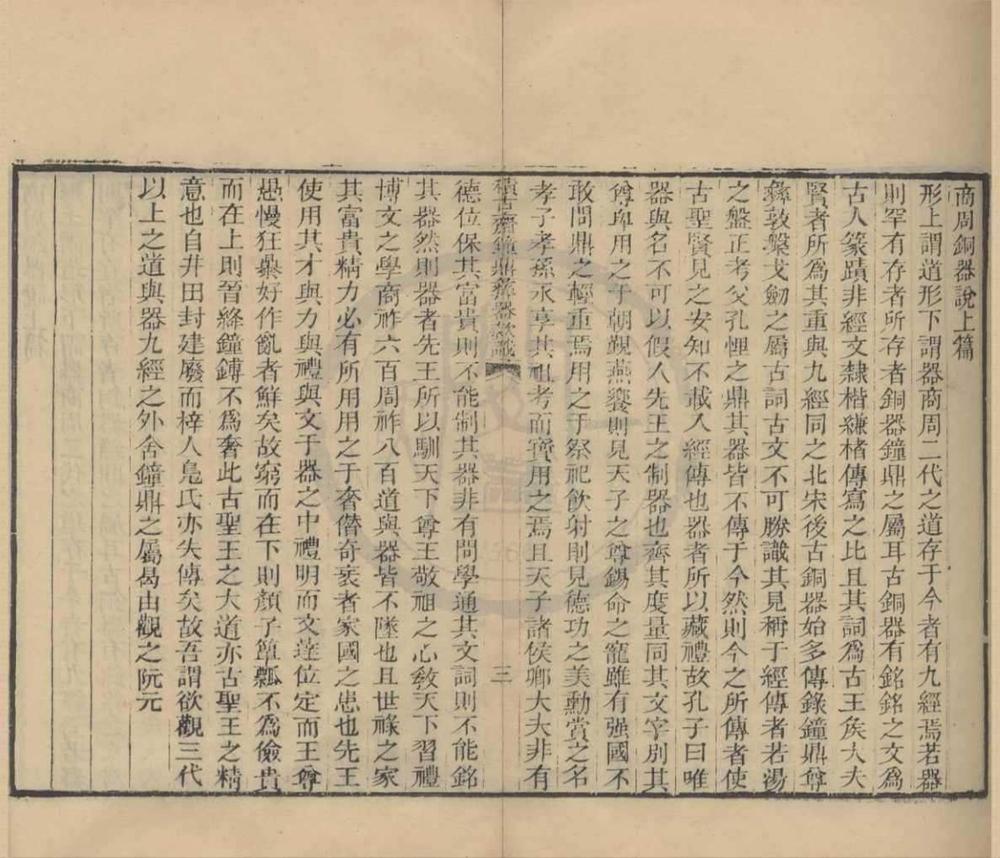 商周銅器說上篇
形上謂道形下謂器商周二代之道存于今者有九經焉若器
則罕有存者所存者銅器鐘鼎之屬耳古銅器有銘銘之文為
古人篆蹟非經文隸楷縑楮傳寫之比且其詞為古王矦大夫
賢者所為其重與九經同之北宋後古銅器始多傳錄鐘鼎尊
彝敦槃戈劒之屬古詞古文不可勝識其見稱于經傳者若湯
之盤正考父孔悝之鼎其器皆不傳于今然則今之所傳者使
古聖賢見之安知不載入經傳也器者所以藏禮故孔子曰唯
器與名不可以假人先王之制器也齊其度量同其文字別其
尊卑用之于朝覲燕饗則見天子之尊錫命之寵雖有强國不
敢問鼎之輕重焉用之于祭祀飲射則見德功之美勳賞之名
孝子孝孫永享其祖考而寶用之焉且天子諸侯卿大夫非有
積古齋鐘鼎彝器款識
三
德位保其富貴則不能制其器非有問學通其文詞則不能銘
其器然則器者先王所以馴天下尊王敬祖之心敎天下習禮
博文之學商祚六百周祚八百道與器皆不墜也且世祿之家
其富貴精力必有所用用之于奢僭奇衺者家國之患也先王
使用其才與力與禮與文于器之中禮明而文達位定而王尊
愚慢狂暴好作亂者鮮矣故窮而在下則顏子簞瓢不為儉貴
而在上則晉絳鐘鎛不為奢此古聖王之大道亦古聖王之精
意也自井田封建廢而梓人鳧氏亦失傳矣故吾謂欲觀三代
以上之道與器九經之外舍鐘鼎之屬曷由觀之阮元